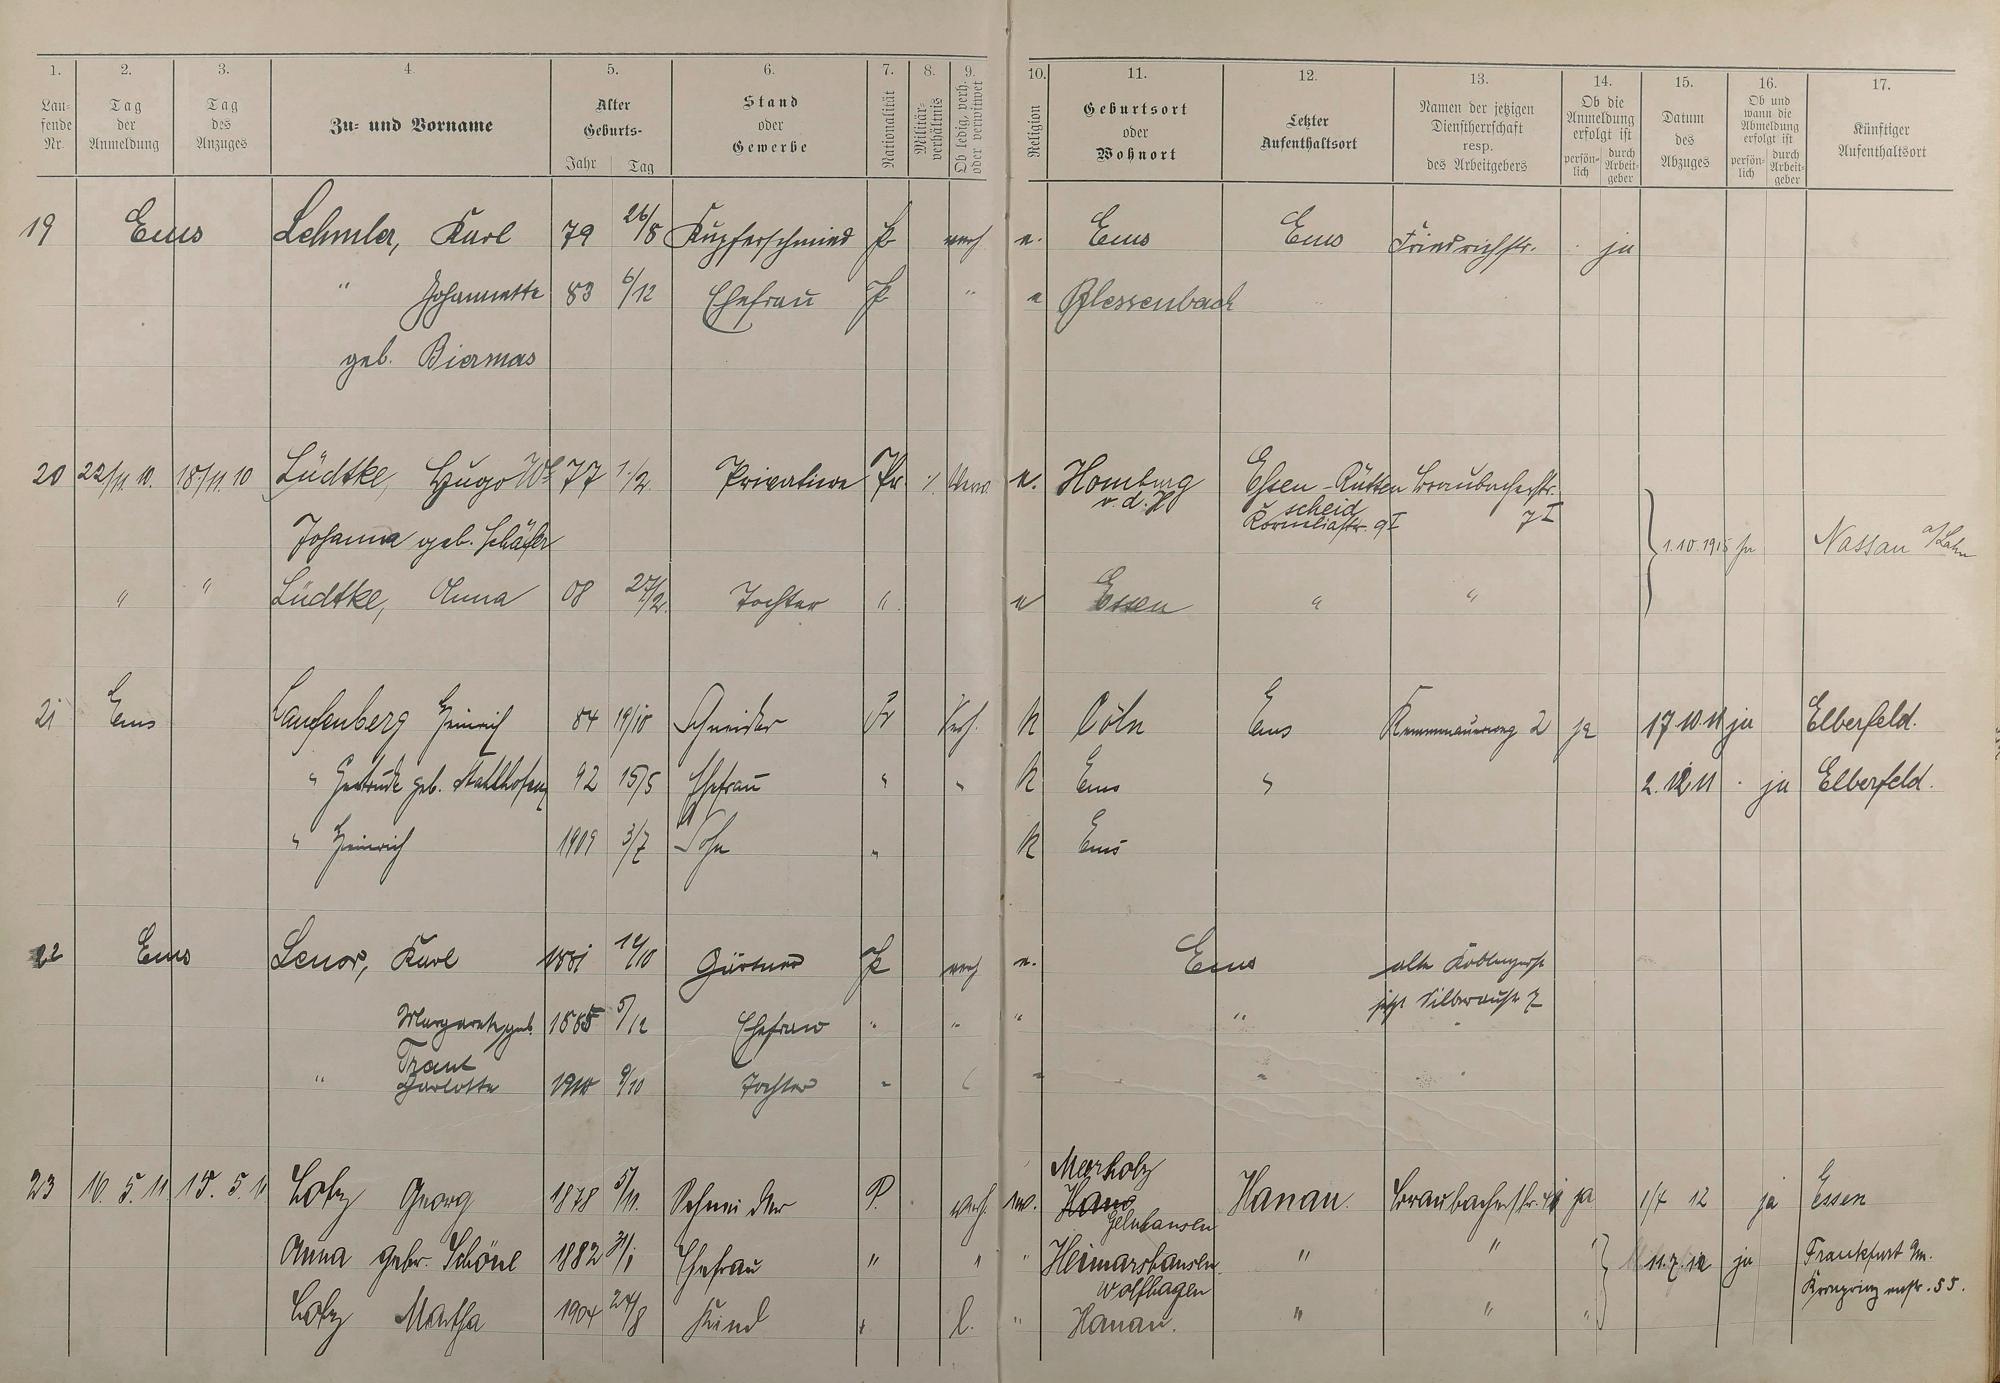 1. 2. 3. 4. 5. 6. 7. 8. 9. 10. 11. 12. 13. 14. 15. 16. 17.
Laufende Nr.
Tag der Anmeldung
Tag des Anzuges
Zu- und Vorname
Alter Geburts- Jahr Tag
Stand oder Gewerbe
Nationalität
Militärverhältnis
Ob ledig, verh. oder verwitwet
Religion
Geburtsort oder Wohnort
Letzter Aufenthaltsort
Namen der jetzigen Dienstherrschaft resp. des Arbeitgebers
Ob die Anmeldung erfolgt ist persönlich durch Arbeitgeber
Datum des Abzuges
Ob und wann die Abmeldung erfolgt ist persönlich durch Arbeitgeber
Künftiger Aufenthaltsort
19 Ems Lehmler, Karl 79 26/8 Kupferschmied P verh. e. Ems Ems Friedrichstr. ja
" Johannette 83 6/12 Ehefrau P " e Blessenbach
geb. Biermas
20 22/11 10. 18./11. 10 Lüdtke, Hugo 77 1./2. Privatiere Pr. e. Homburg v. d. H Essen-Rüttenscheid Braubacherstr. 7 I
Johanna geb. Schäfer 1.10.1915 Nassau a/Lahn
" " Lüdtke, Anna 08 27/2. Tochter " e Essen " "
21 Ems Laufenberg Heinrich 84 19/10 Schneider Pr Verh. K Cöln Ems Kemmenauerweg 2 ja 17 10 11 ja Elberfeld.
" Gertrude geb. Stahlhofen 92 15/5 Ehefrau " " K Ems " 2. 12 11 ja Elberfeld.
" Heinrich 1909 3/7 Sohn " K Ems
22 Ems Lenor, Karl 1881 /10 Gärtner P verh e. Ems alte Koblenzerstr
jetzt Silberaustr 7
Margarete geb. 1885 5/12 Ehefrau " " " "
Traut
" Charlotte 1910 9/10 Tochter " " "
23 16. 5. 11 15. 5. 11 Lotz Georg 1878 5/11. Schneider P. verh. Merholz Hanau. Braubacherstr. ja 1/4 12 ja Essen
Gelnhausen
Anna gebr. Schönl 1882 31/1 Ehefrau " " " Heimarshausen " " " 11.7.12 ja Frankfurt a/m.
Wolfhagen Kronprinzenstr. 55.
Lotz Martha 1904 24/8 Kind l. " Hanau. " " "